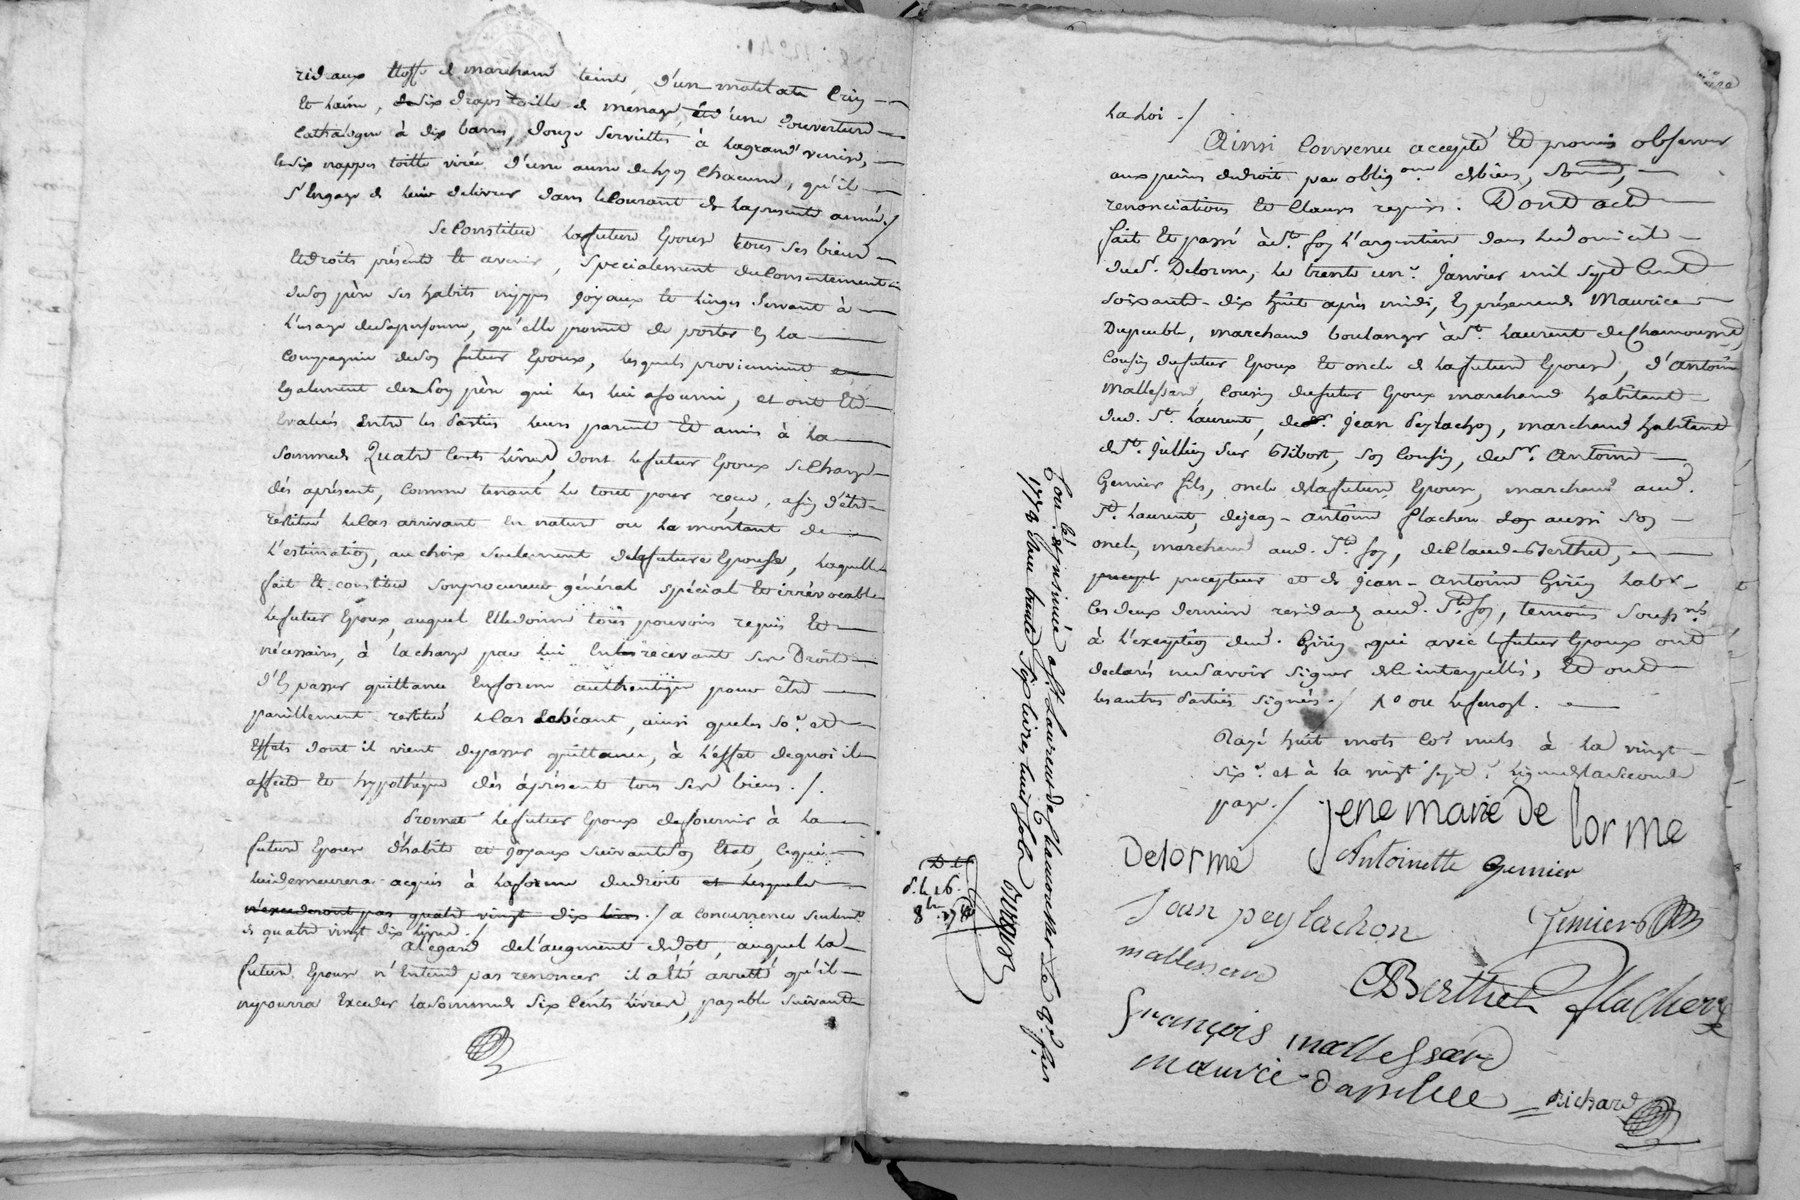 rideaux étoffe de marchand teinte, d'un matelat Crin
et laine, de six draps toille de menage, et d'une Couverture
Cathalogne à dix barres, douze serviettes à la grand venise,
et six nappes toille virée d'une aune demy Chacune, qu'il
s'engage de leur delivrer dans le Courant de la presente année ./
Se Constitue la future Epouse tous ses biens
et droits présents et avenir, spécialement du Consentement
de son père ses habits nippes joyaux et linges servant à
l'usage de sa personne, qu'elle promet de porter en la
Compagnie de son futur Epoux, lesquels proviennent
Egalement de son père qui les lui a fourni, et ont Eté
Evalués entre les parties leurs parents et amis à la
somme de Quatre Cents livres, dont le futur Epoux se Charge
dés aprésent, Comme tenant le tout pour reçu, afin d'être
restitué le Cas arrivant en nature ou la montant de
l'estimation, au choix seulement de la future Epouse, laquelle
fait et constitue son procureur général spécial et irrévocable
le futur Epoux, auquel Elle donne tous pouvoirs requis et
nécessaires, à la charge par lui En recevant ses Droits
d'En passer quittance En forme authentique pour être
pareillement restitué le Cas Echéant, ainsi que les so.e et
Effets dont il vient de passer quittance, à l'effet de quoi il
affecte et hypothéque dès àprésent tous ses biens ./.
Promet le futur Epoux de fournir à la
future Epouse d'habits et joyaux suivant son Etat, Ce qui
lui demeurera acquis à la forme du droit et lesquels
n'excederont pas quatre vingt dix livres ./ a concurrence seulemt
de quatre vingt dix livres ./
a l'egard de l'augment de dot, auquel la
future Epouse n'Entend pas renoncer il a été arretté qu'il
ne pourra Exceder la somme de six Cents livres, payable suivant
la Loi ./
Ainsi Convenu accepté et promis observer
aux peines de droit par oblig.on de biens,
renonciations et Clauses requises. Dont acte
fait et passé à Ste foy l'argentiere dans le domicile
du d. Delorme, le trente un.e Janvier mil sept Cent
soixante-dix huit après midi, En présence de Maurice
Dupeuble, marchand boulanger à St Laurent de Chamousset,
Cousin du futur Epoux et oncle de la future Epouse, d'antoine
Mallessard, Cousin du futur Epoux marchand habitant
dud. St Laurent, de Sr. Jean Peylachon, marchand habitant
de St Jullien sur Bibost, son Cousin, de Sr Antoine
Gemier fils, oncle de la future Epouse, marchand aud.
St Laurent, de jean-antoine flachere aussi son
oncle, marchand aud. Ste foy, de Claude Berthet,
precepteur et de jean-antoine Girin labr
les deux derniers residants aud. Ste foy, temoins soussnés
à l'exception dud. Girin qui avec le futur Epoux ont
declarés ne savoir signer de ce interpellés, et ont
les autres parties signés ./
Rayé huit mots Com nuls à la vingt-
six.e et à la vingt sept.e lignes de la seconde
page ./
jene marie De lorme
Delorme
Antoinette Gemier
Jean peylachon
Gemier
mallessard
CBerthet
flachere
françois mallessard
maurice dupeuble
Richard
Con.lé et insinué a St Laurent de Chamousset Le 9r fer
1778 Reçu trente six livres huit sols